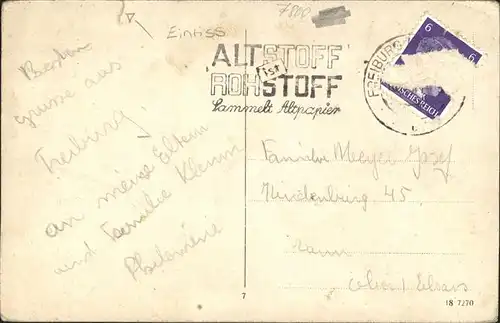 7800
Einriss
ALTSTOFF
ist
ROHSTOFF
Sammelt Altpapier
FREIBURG
6 6
DEUTSCHES REICH
c
Besten
grüsse aus
Freiburg
an meine Eltern
und Familie Klamm
Philomene
Familie Meyer Josef
Hindenburg 45
Elsass
7
18 7270